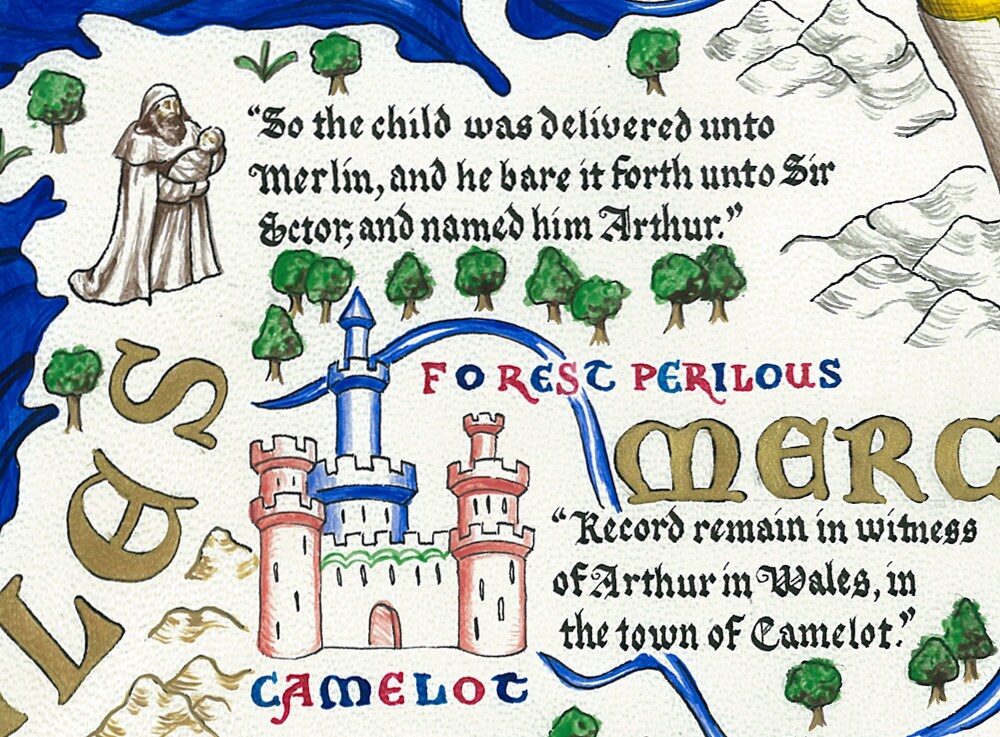 “So the child was delivered unto
Merlin, and he bare it forth unto Sir
Ector; and named him Arthur.”
FOREST PERILOUS
LES
MERC
“Record remain in witness
of Arthur in Wales, in
the town of Camelot.”
CAMELOT